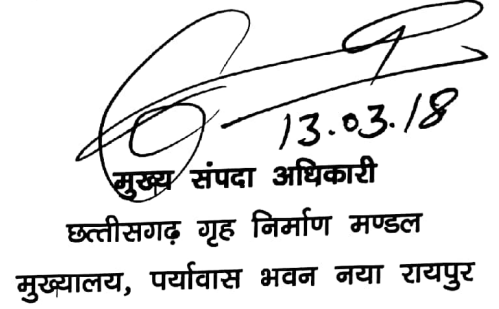 13.03.18
मुख्य संपदा अधिकारी
छत्तीसगढ़ गृह निर्माण मण्डल
मुख्यालय, पर्यावास भवन नया रायपुर